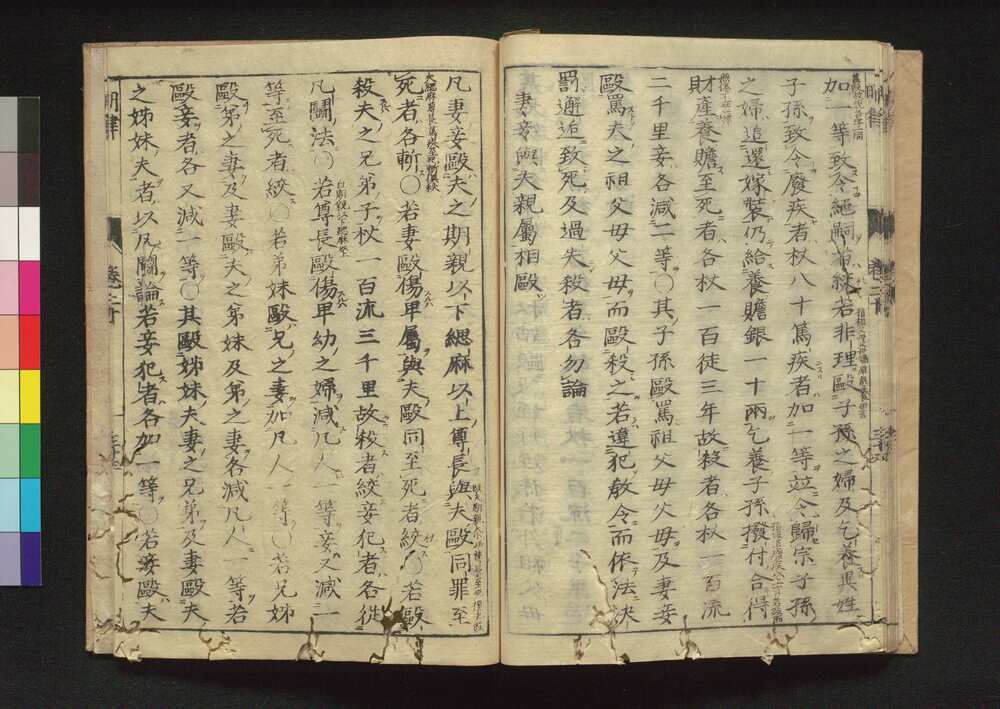 加一等致令絕嗣者絞若非理毆子孫之婦及乞養異姓
子孫致令廢疾者杖八十篤疾者加一等竝令歸宗子孫
之婦追還嫁裝仍給養贍銀一十兩乞養子孫撥付合得
財産養贍至死者各杖一百徒三年故殺者各杖一百流
二千里妾各減二等○其子孫毆罵祖父母父母及妻妾
毆罵夫之祖父母父母而毆殺之若違犯敎令而依法決
罰邂逅致死及過失殺者各勿論
妻妾與夫親屬相毆
凡妻妾毆夫之期親以下緦麻以上尊長與夫毆同罪至
死者各斬○若妻毆傷卑屬與夫毆同至死者絞○若毆
殺夫之兄弟子杖一百流三千里故殺者絞妾犯者各從
凡鬭法○若尊長毆傷卑幼之婦減凡人一等妾又減一
等至死者絞○若弟妹毆兄之妻加凡人一等○若兄姊
毆弟之妻及妻毆夫之弟妹及弟之妻各減凡人一等若
毆妾者各又減一等○其毆姊妹夫妻之兄弟及妻毆夫
之姊妹夫者以凡鬭論若妾犯者各加一等○若妾毆夫
明律
卷二十